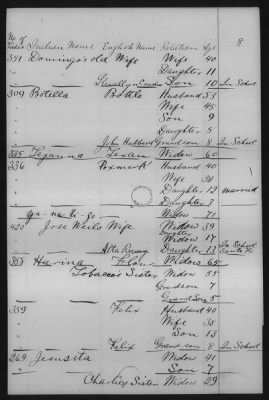 8
No. of
Indian Name English Name Relation Age
391 Domingo's old Wife Wife 40
Daughter 11
Son 10 In School
309 Botella Bottle Husband 53
Wife 45
Son 9
Daughter 5
John Hubbard Grandson 8 In School
335 Widow 60
336 Husband 40
Wife 38
Daughter 12 married
Daughter 3
Widow 71
420 Jose Wife Widow 39
Daughter
Widow 17
Daughter 13 In School Santa Fe
358 Widow 65
Tobacco's Sister Widow 55
Grandson 7
Grandson 5
359 Felix Husband 40
Wife 38
Son 13
Felix Grandson 8 In School
269 Jesusita Widow 41
Son 7
Charley Sister Widow 29